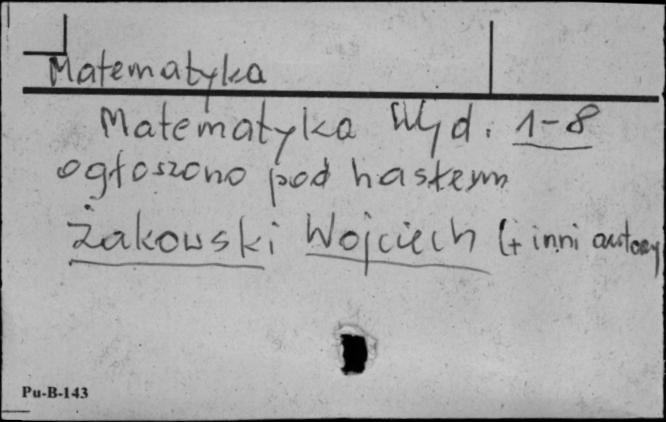 Matematyka
Matematyka Wyd. 1-8
ogłoszono pod hasłem
Żakowski Wojciech (+ inni autorzy
Pu-B-143